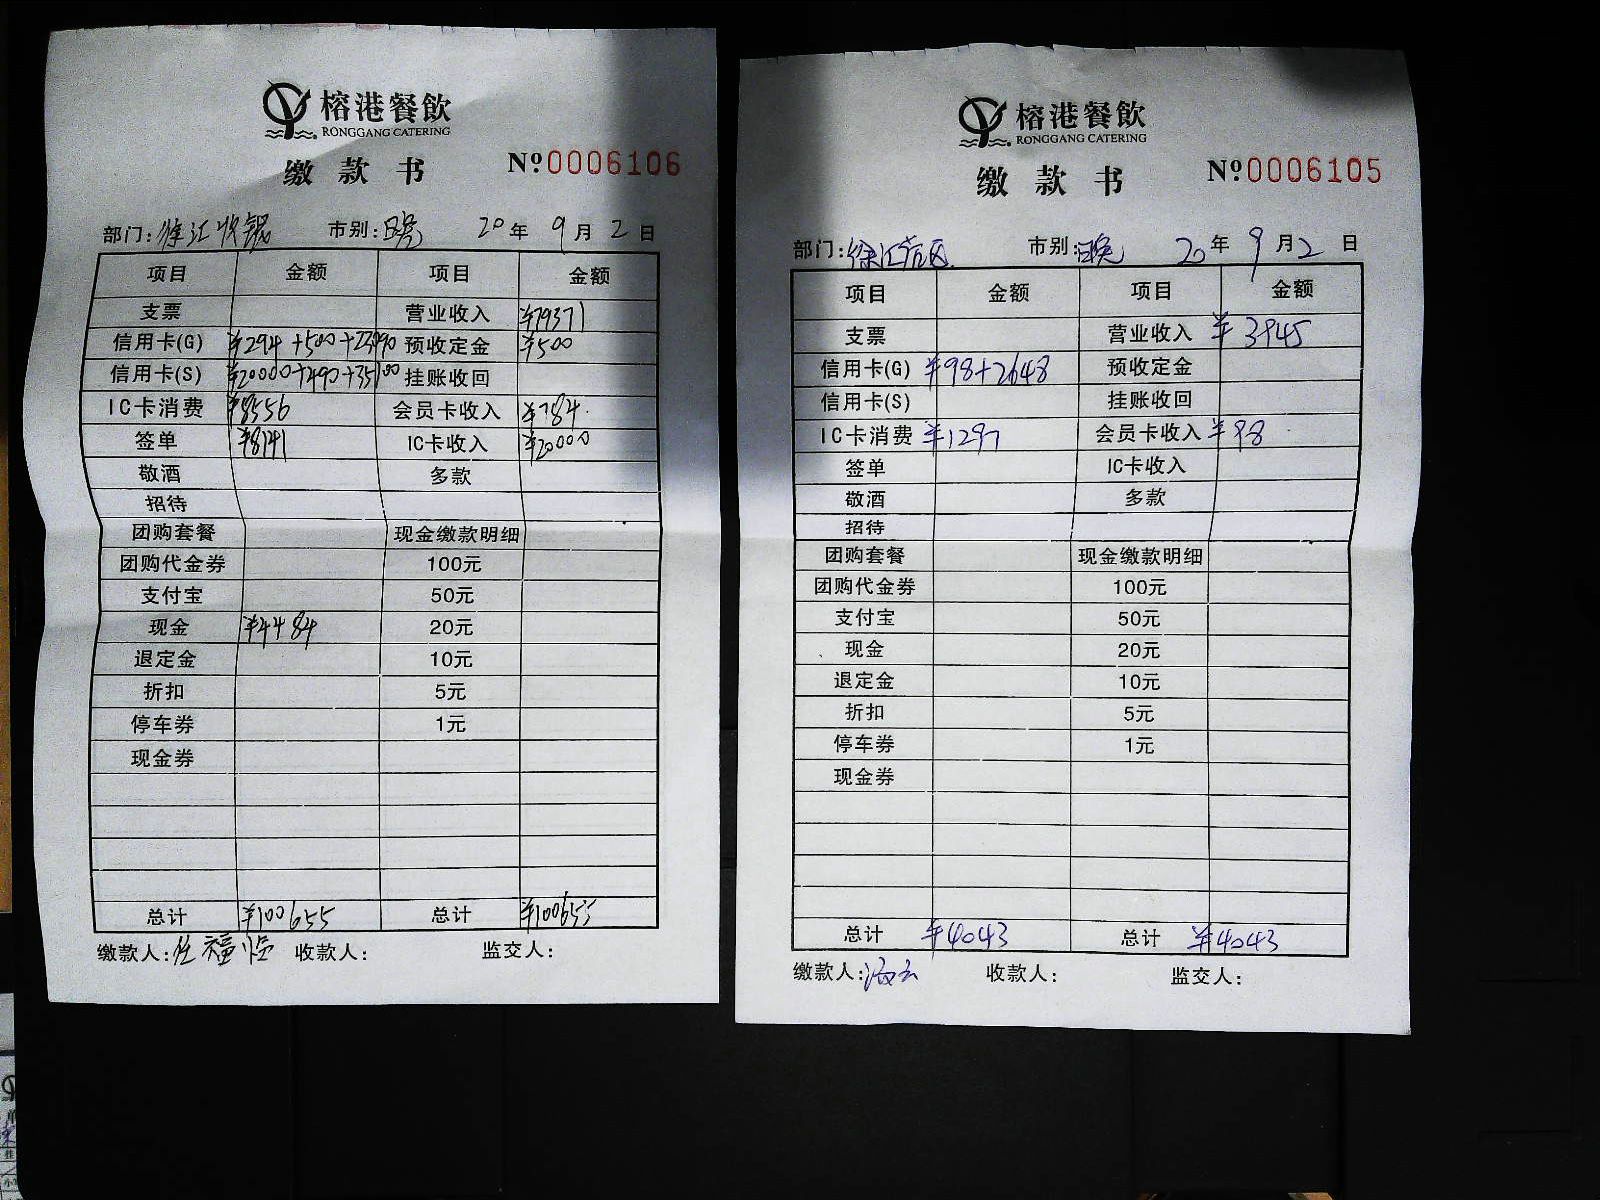 榕港餐飲
RONGGANG CATERING
缴款书 Nº0006106
部门:徐汇收银 市别:日晚 20年9月2日
项目 金额 项目 金额
支票 营业收入 ¥79371
信用卡(G) ¥294+500+23990 预收定金 ¥500
信用卡(S) ¥20000+490+35100 挂账收回
IC卡消费 ¥8556 会员卡收入 ¥784
签单 ¥8141 IC卡收入 ¥20000
敬酒 多款
招待
团购套餐 现金缴款明细
团购代金券 100元
支付宝 50元
现金 ¥4484 20元
退定金 10元
折扣 5元
停车券 1元
现金券
总计 ¥100655 总计 ¥100655
缴款人: 收款人: 监交人:
榕港餐飲
RONGGANG CATERING
缴款书 Nº0006105
部门:徐汇 市别:日晚 20年9月2日
项目 金额 项目 金额
支票 营业收入 ¥3945
信用卡(G) ¥98+2648 预收定金
信用卡(S) 挂账收回
IC卡消费 ¥1297 会员卡收入 ¥98
签单 IC卡收入
敬酒 多款
招待
团购套餐 现金缴款明细
团购代金券 100元
支付宝 50元
现金 20元
退定金 10元
折扣 5元
停车券 1元
现金券
总计 ¥4043 总计 ¥4043
缴款人: 收款人: 监交人: